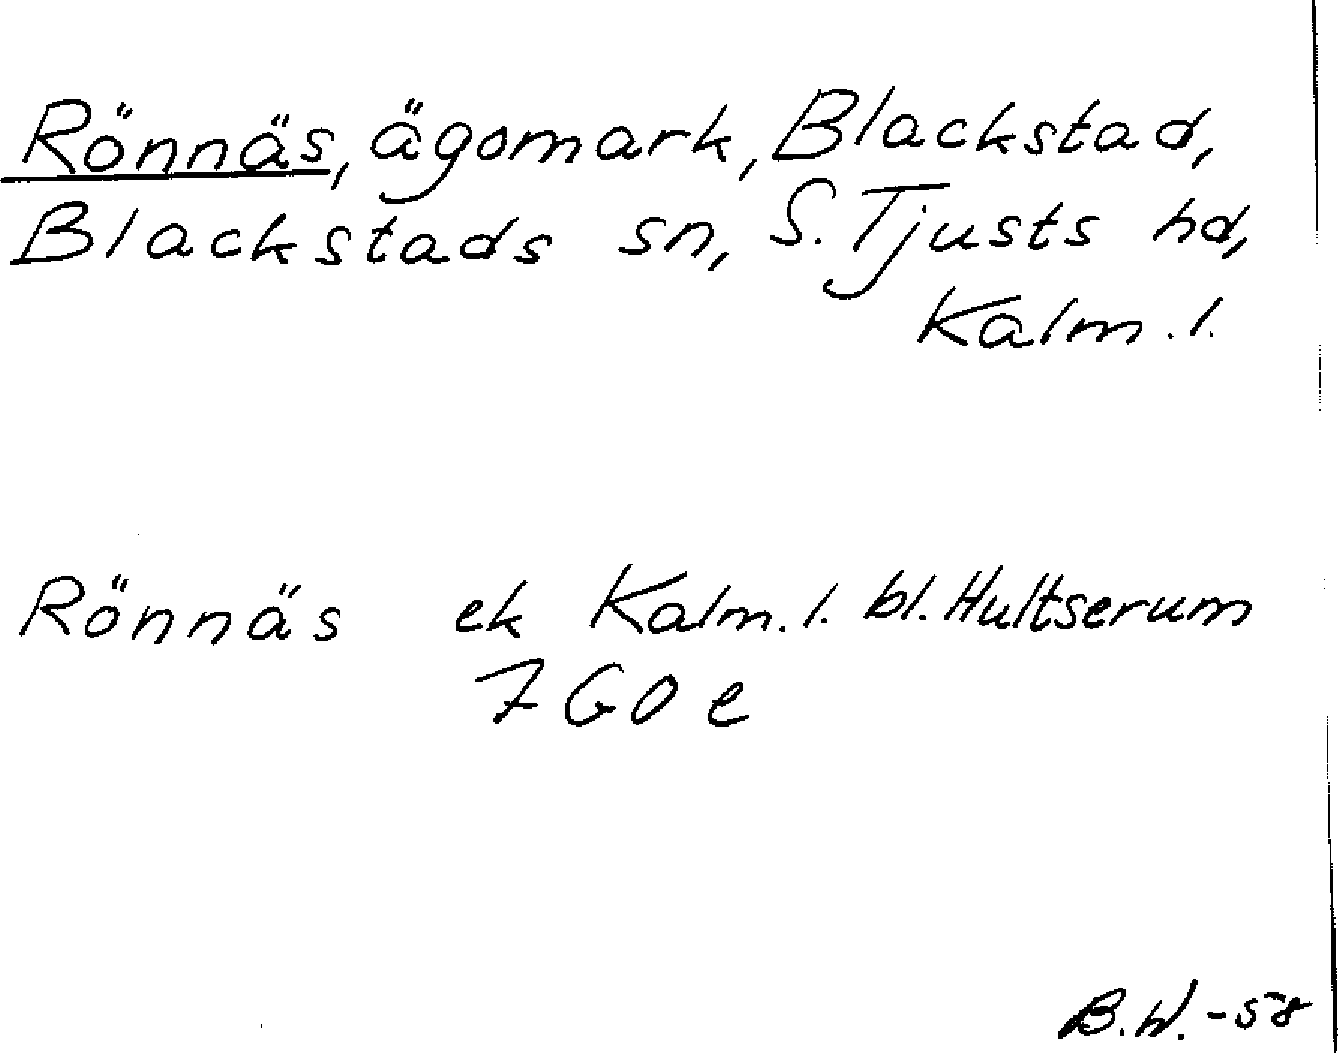 Rönnäs, ägomark, Blackstad,
Blackstads sn, S. Tjusts hd,
Kalm. l.
Rönnäs ek Kalm. l. bl. Hultserum
7 G O e
B.W. -58